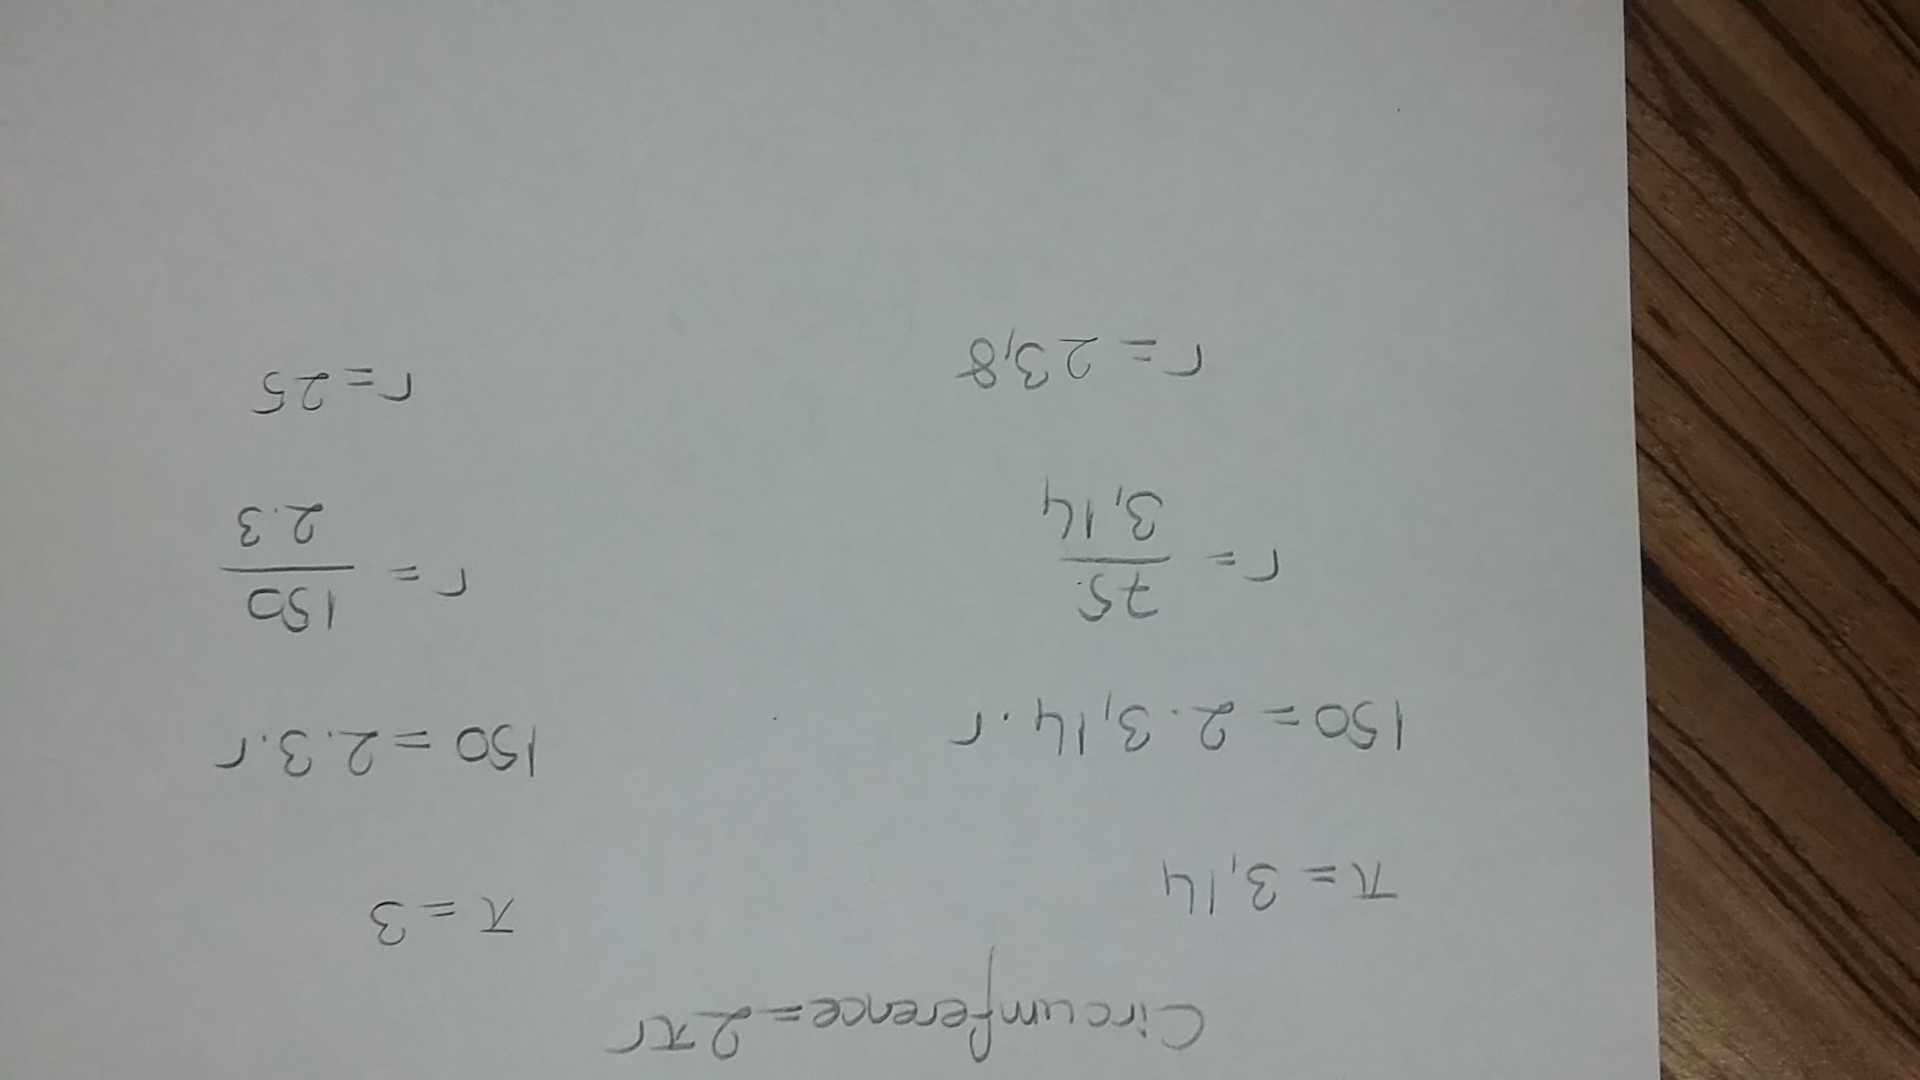 Circumference = 2πr
π = 3,14
150 = 2 . 3,14 . r
r = 75/3,14
r = 23,8
π = 3
150 = 2 . 3 . r
r = 150/2.3
r = 25